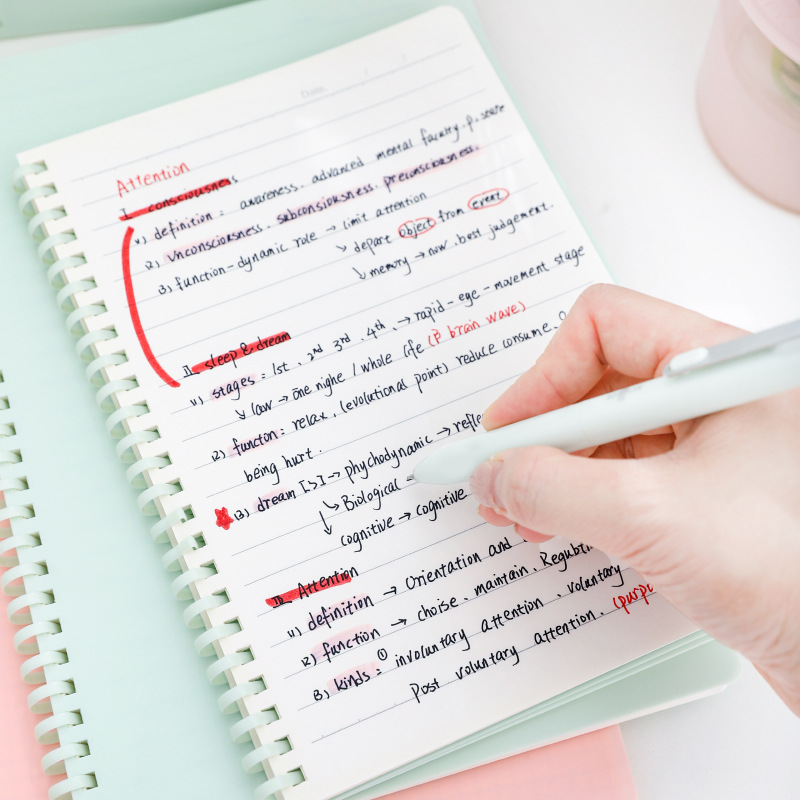 Date / /
Attention
I consciousness
(1) definition : awareness. advanced mental
(2) Unconsciorsness. subconsiorsness. preconsciorsness.
(3) function-dynamic role → limit attention
↘ depart object from event
↘ memory → now. best judgement.
II sleep & dream
(1) stages : 1st. 2nd 3rd. 4th. → rapid-eye-movement stage
↘ low → one nighe / whole life (β brain wave)
(2) functon : relax. (evolutional point) reduce consume.
being hurt.
(3) dream [>] → phychodynamic → refle
↘ Biological
↓ cognitive → cognitive
III Attention
(1) definition → Orientation and
(2) function → choise. maintain.
(3) kinds : ① involuntary attention. voluntary
Post voluntary attention. (purp